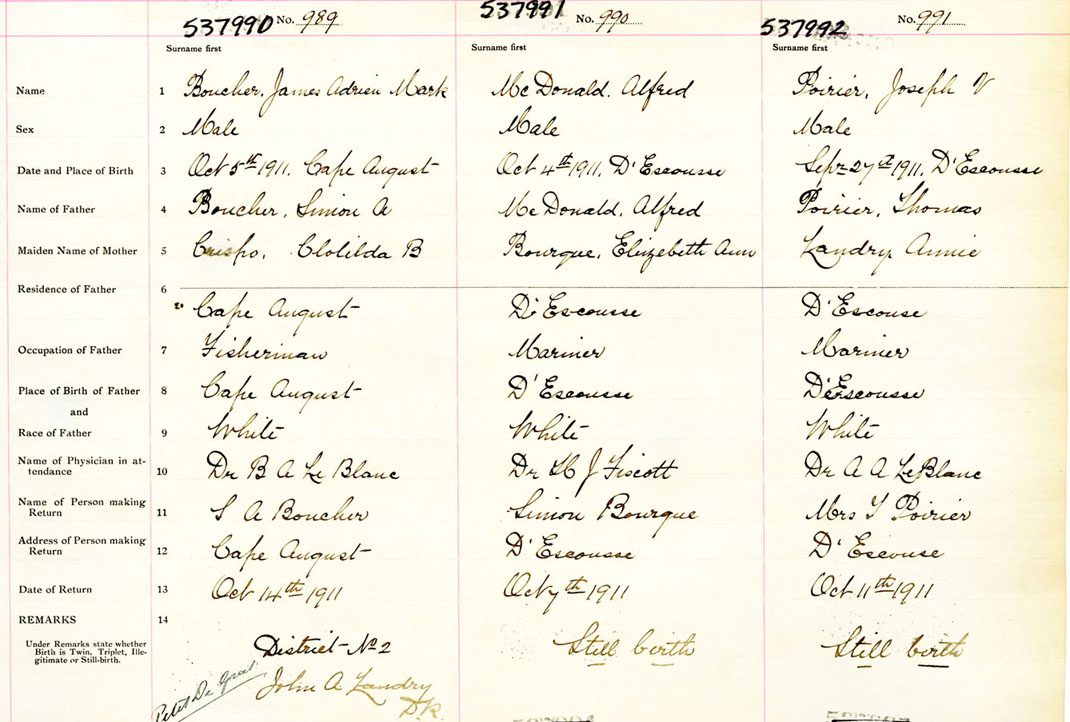 537990 No. 989 537991 No. 990 537992 No. 991
Surname first Surname first Surname first
Name 1 Boucher, James Adrien Mark McDonald, Alfred Poirier, Joseph V
Sex 2 Male Male Male
Date and Place of Birth 3 Oct 5th 1911, Cape August Oct 4th 1911, D'Escousse Sept 27th 1911, D'Escousse
Name of Father 4 Boucher, Simon A McDonald, Alfred Poirier, Thomas
Maiden Name of Mother 5 Crispo, Clotilda B Bourque, Elizebeth Ann Landry Annie
Residence of Father 6
Cape August D'Escousse D'Escouse
Occupation of Father 7 Fisherman Mariner Mariner
Place of Birth of Father 8 Cape August D'Escousse D'Escousse
and
Race of Father 9 White White White
Name of Physician in at-
tendance 10 Dr B A Le Blanc Dr H J Fiscott Dr A A LeBlanc
Name of Person making
Return 11 S A Boucher Simon Bourque Mrs T Poirier
Address of Person making
Return 12 Cape August D'Escousse D'Escouse
Date of Return 13 Oct 14th 1911 Oct 7th 1911 Oct 11th 1911
REMARKS 14
Under Remarks state whether
Birth is Twin, Triplet, Ille-
gitimate or Still-birth.
District No 2 Still birth Still birth
Petit De Grat John A Landry
D.R.